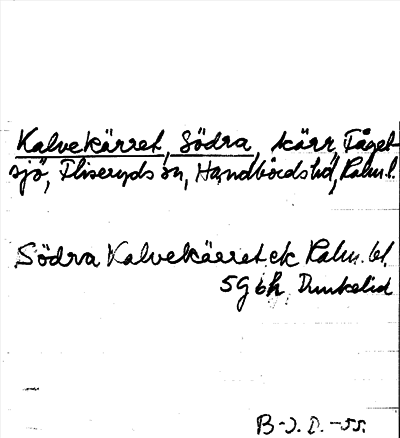 Kalvekärret, Södra, kärr, Fåget-
sjö, Fliseryds sn, Handbörds hd, Kalm. l.
Södra Kalvekärret ek Kalm. bl.
5G 6h Dunkelid
B-J. D. -55.